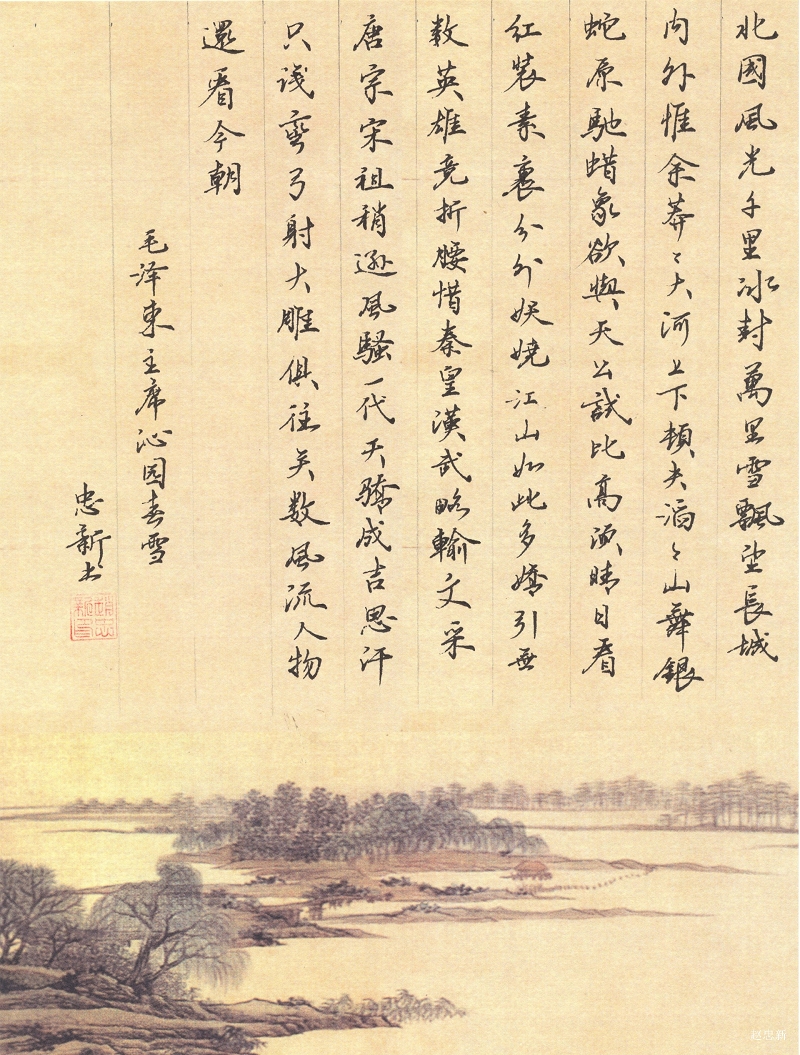 北國風光千里冰封萬里雪飄望長城
内外惟余莽〻大河上下頓失滔〻山舞銀
蛇原馳蜡象欲與天公試比高須晴日看
红装素裹分外妖娆江山如此多嬌引無
数英雄竞折腰惜秦皇漢武略輸文采
唐宗宋祖稍逊風騷一代天驕成吉思汗
只識彎弓射大雕俱往矣数風流人物
還看今朝
毛泽東主席沁园春雪
忠新书
趙忠新印
赵忠新